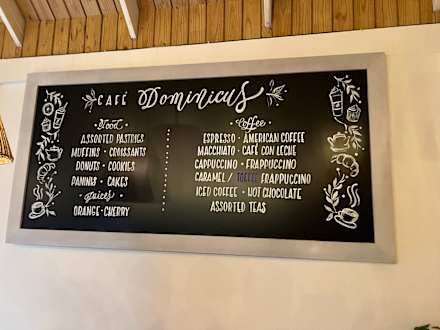 CAFÉ Dominicus
Food
ASSORTED PASTRIES
MUFFINS · CROISSANTS
DONUTS · COOKIES
PANINIS · CAKES
Juices
ORANGE · CHERRY
Coffee
ESPRESSO · AMERICAN COFFEE
MACCHIATO · CAFÉ CON LECHE
CAPPUCCINO · FRAPPUCCINO
CARAMEL / TOFFEE FRAPPUCCINO
ICED COFFEE · HOT CHOCOLATE
ASSORTED TEAS